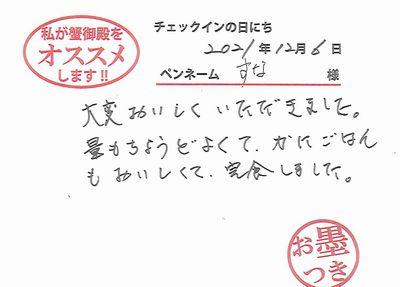 私が蟹御殿を
オススメ
します!!
チェックインの日にち
2021年12月6日
ペンネーム すな 様
大変おいしくいただきました。
量もちょうどよくて、かにごはん
もおいしくて、完食しました。
お墨
つき